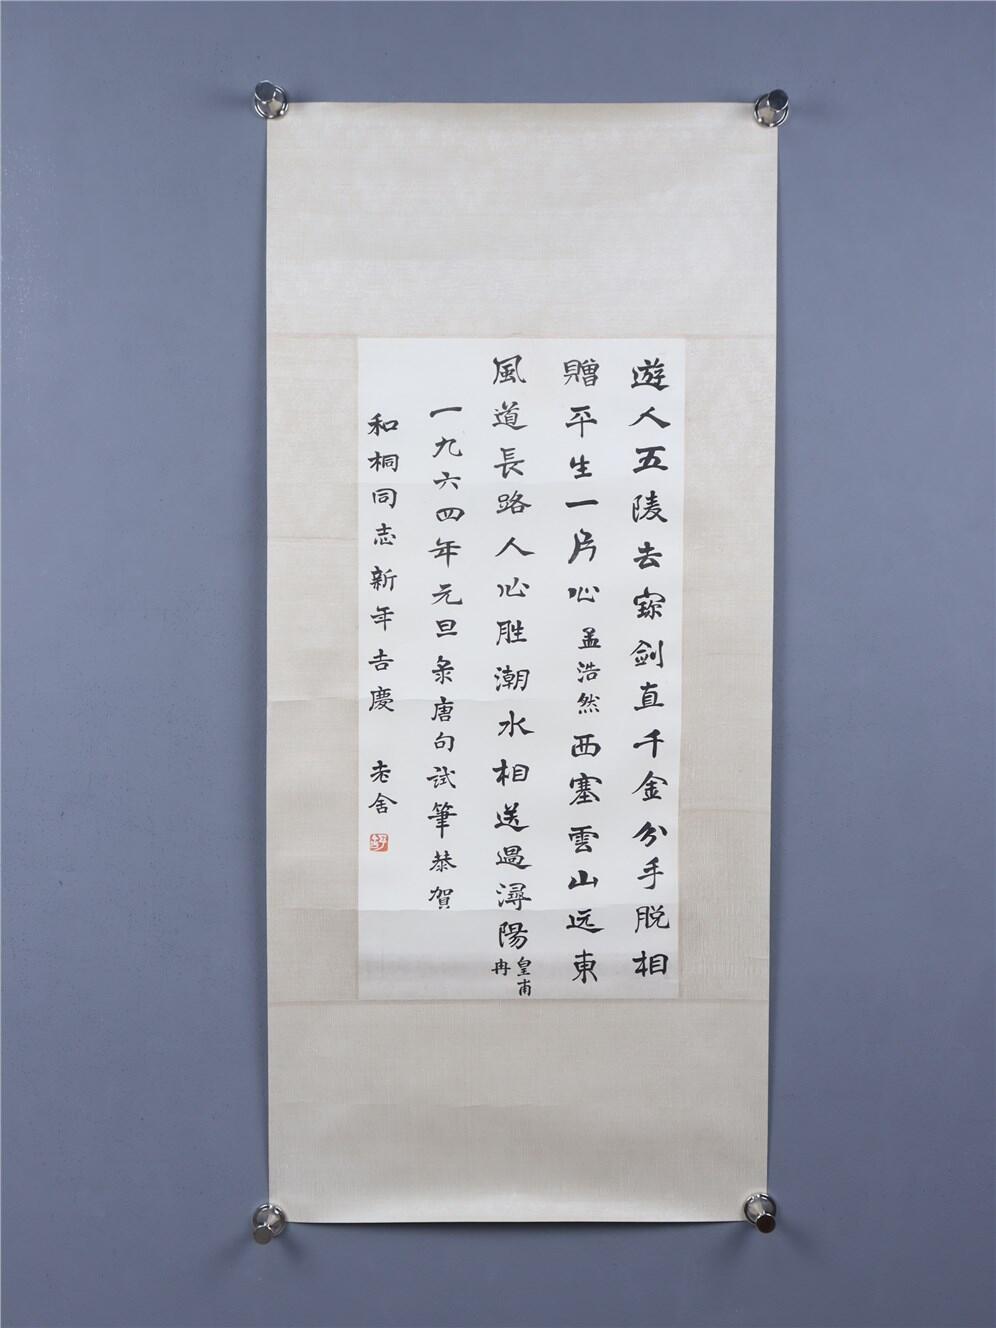 遊人五陵去寳劍直千金分手脱相
贈平生一片心孟浩然西塞雲山远東
風道長路人心胜潮水相送過潯陽皇甫冉
一九六四年元旦录唐句试筆恭賀
和桐同志新年吉慶 老舍
舒